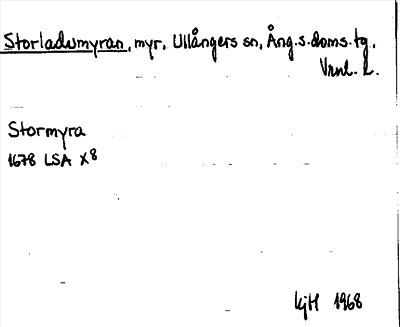 Storladumyran, myr, Ullångers sn, Ång.s.doms.tg.
Vrnl. L.
Stormyra
1678 LSA X8
KjH 1968